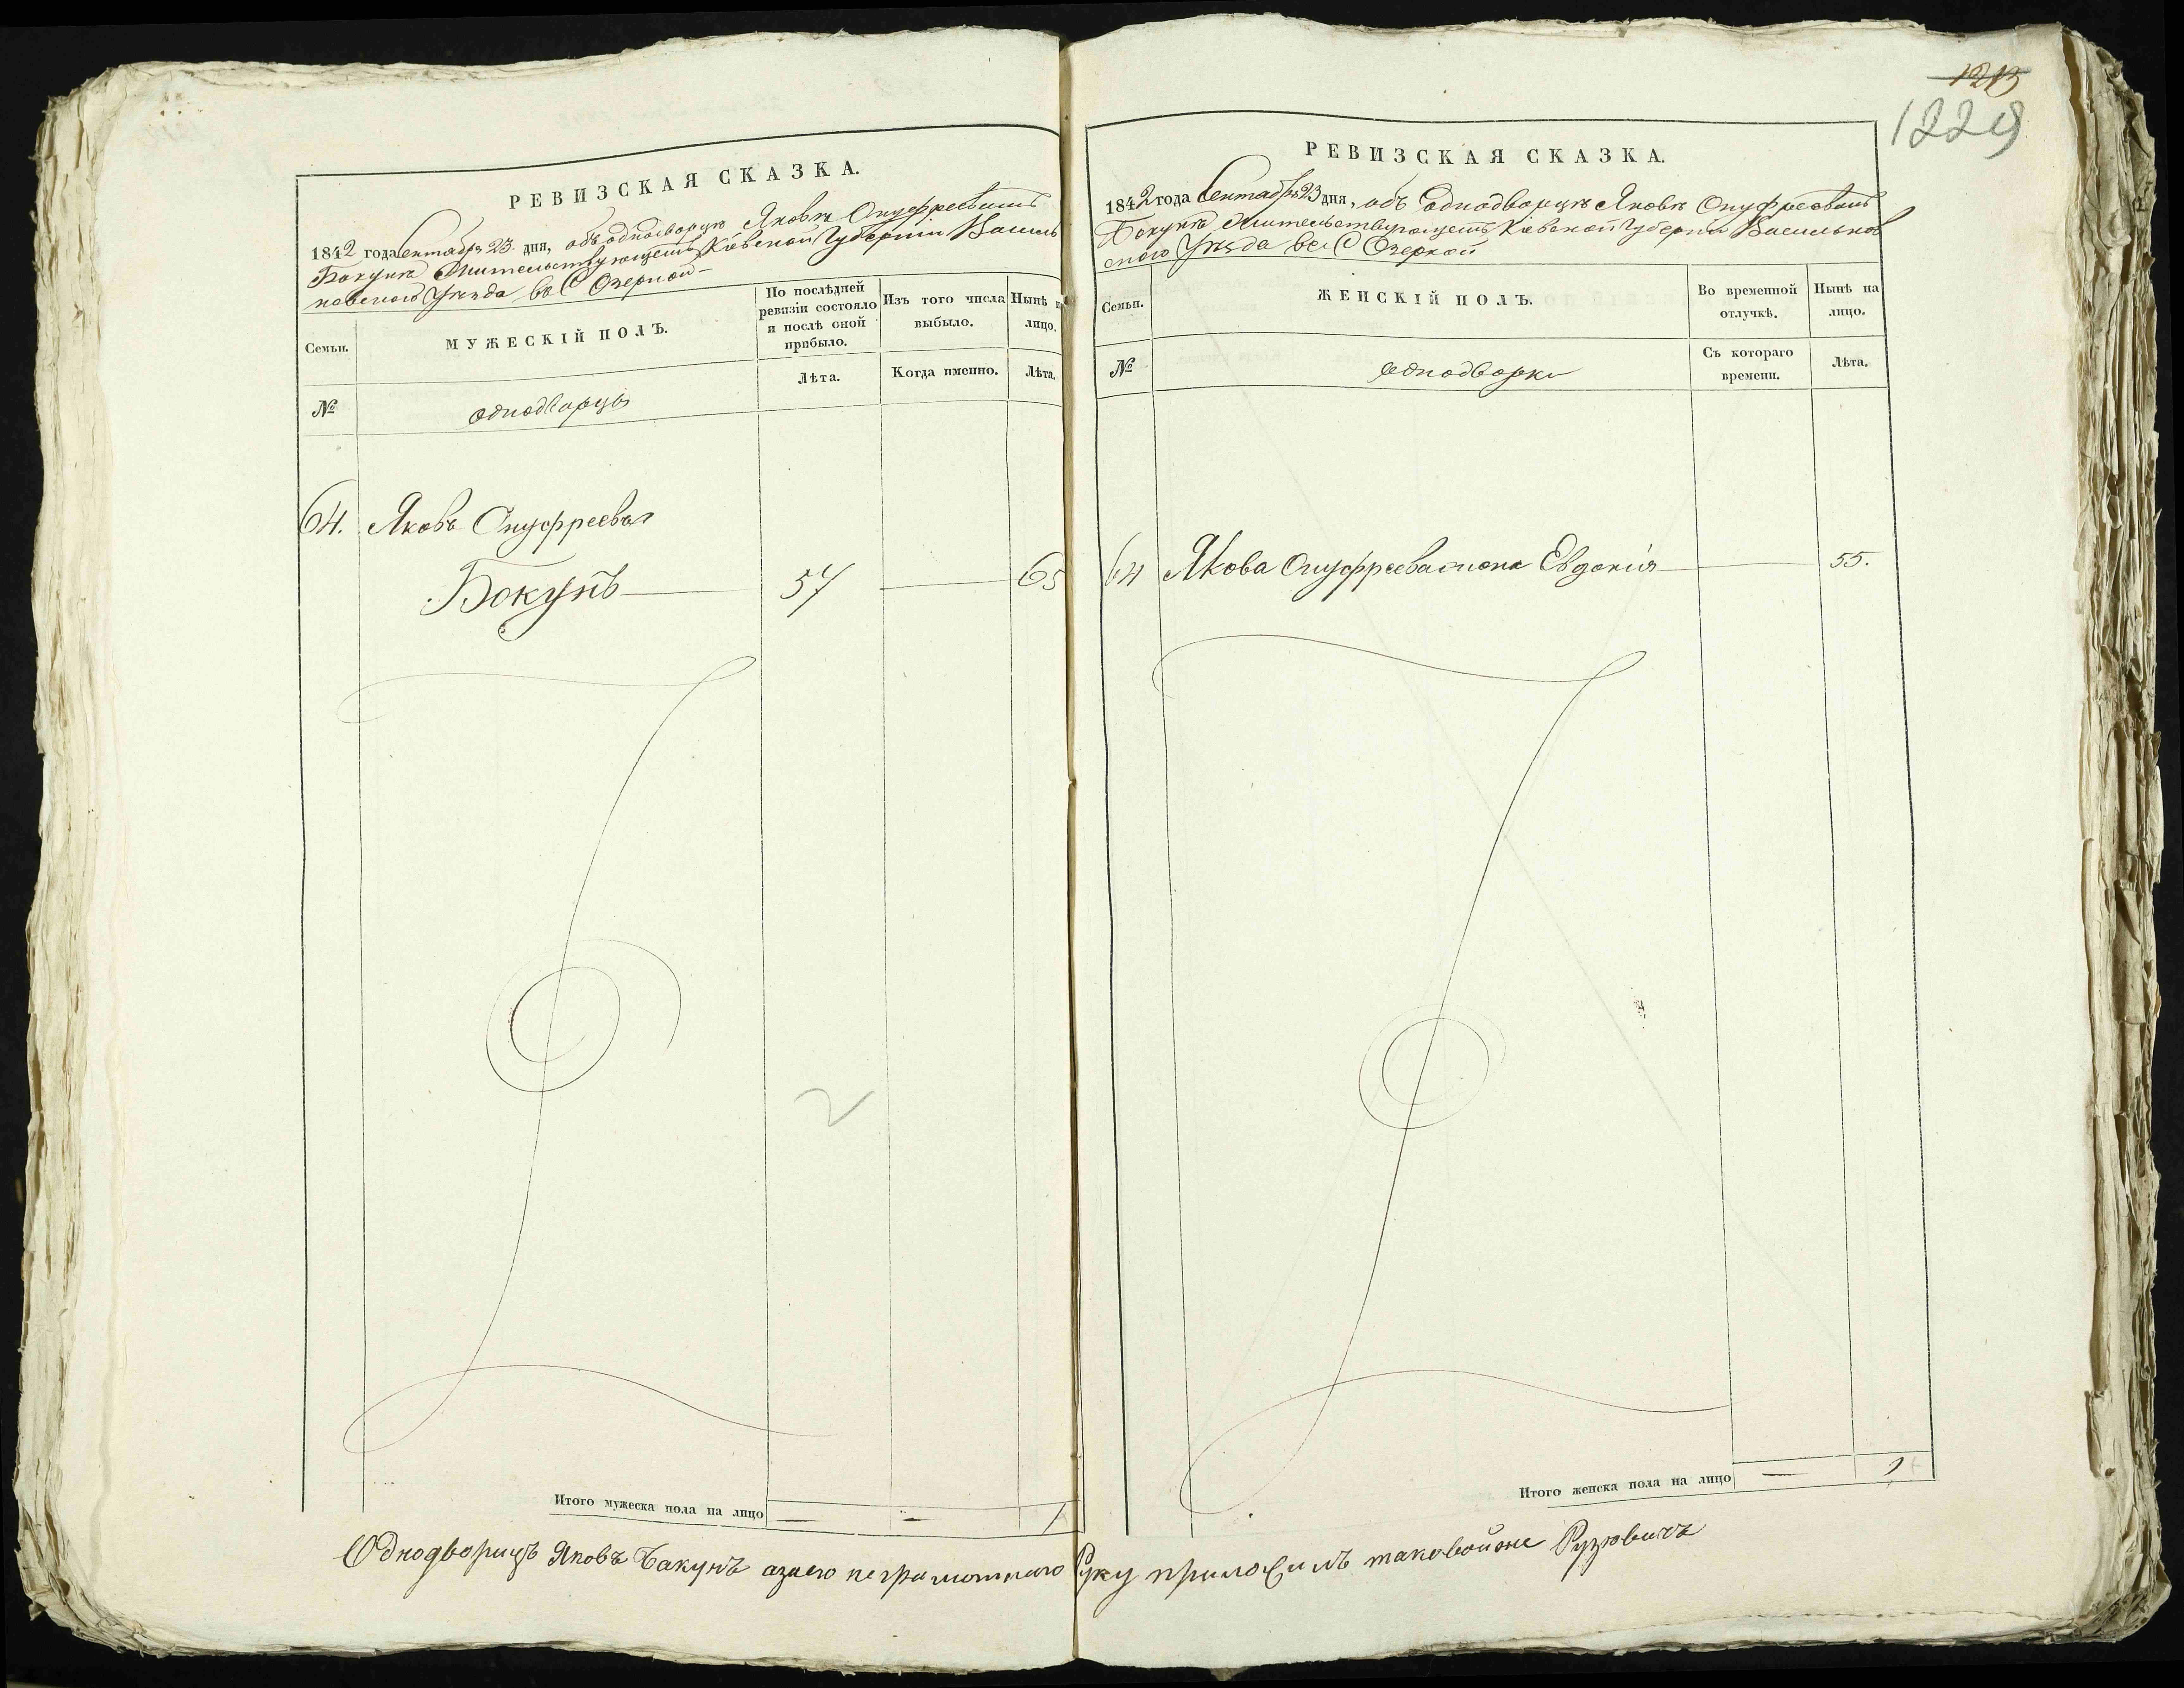 РЕВИЗСКАЯ СКАЗКА.
1842 года Сентабръ 23. дня, объ однодворцѣ Яковѣ Онуфреевымъ
Бокунѣ Жительствующемъ Кіевской Губерніи Василь
ковского Уѣзда, въ С Озерной-
Семьи.
МУЖЕСКІЙ ПОЛЪ.
По послѣдней ревизіи состояло и послѣ оной прибыло.
Изъ того числа выбыло.
Нынѣ на лицо.
№
однодворцы
Лѣта.
Когда именно.
Лѣта.
64. Яковъ Онуфреевъ
Бокунъ 57 65
2
Итого мужеска пола на лицо 1
1213
1229
РЕВИЗСКАЯ СКАЗКА.
1842 года Сентабръ 23 дня, объ Однодворцѣ Яковѣ Онуфреевымъ
Бокунѣ Жительствующемъ Кіевской Губерніи Васильков
ского Уѣзда въ С Озерной
Семьи.
ЖЕНСКІЙ ПОЛЪ.
Во временной отлучкѣ.
Нынѣ на лицо.
№
однодворки
Съ котораго времени.
Лѣта.
64 Якова Онуфреева жена Евдокія 55.
Итого женска пола на лицо 1
Однодворицъ Яковъ Бакунъ азаего неграмотнаго Руку приложилъ таковойже Рузювичъ